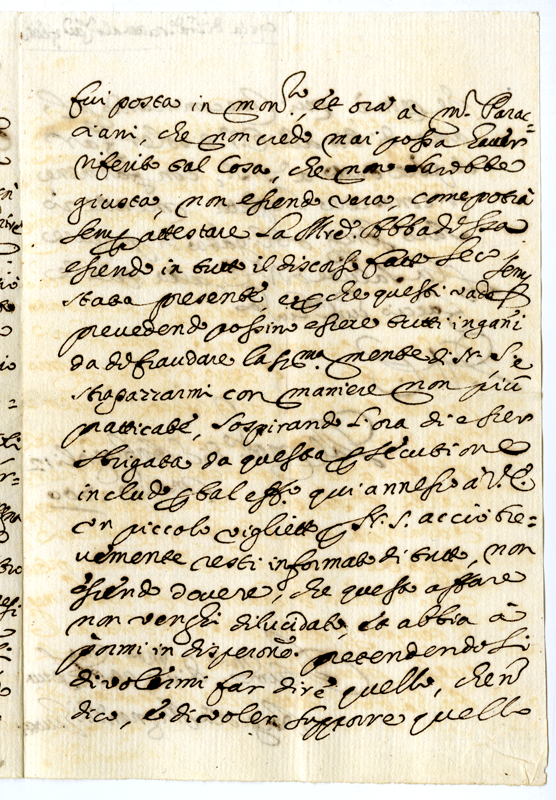 fui posta in mon.ro, et ora à m.r Parac=
ciani, che non credo mai possa haver
riferito tal cosa, che non sarebbe
giusta, non esiendo vera, come potrà
semp attestare la Mrd. Abbadessa
esiendo in tutto il discorso fatto seco sem
stata presente e che questi vado
prevedendo possino esiere tutti ingañi
da defraudare la s.ma mente di N. S. e
strapazzarmi con maniere non più
pratticate, sospirando l'ora di esier
sbrigata da questa secutione
includo tal eff. qui annesio à V. E.
con piccolo vigliett N. S. acciò bre=
vemente resti informato di tutto, non
esiendo dovere, che questo affare
non venghi dilucidato, et abbia à
pormi in disperone. pretendendosi
di volermi far dire quello, che n
dico, e di voler supporre quello